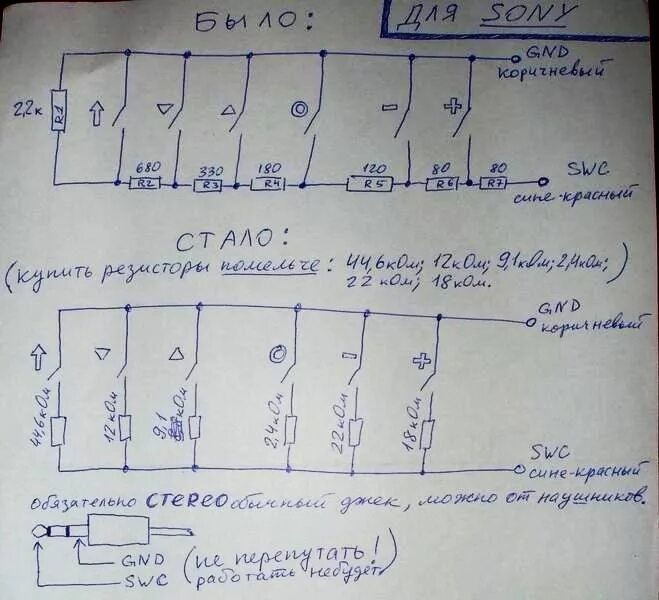 БЫЛО:
ДЛЯ SONY
GND
коричневый
2,2к
R1
680
330
180
120
80
80
R2
R3
R4
R5
R6
R7
SWC
сине-красный
СТАЛО:
(купить резисторы помельче: 44,6кОм; 12кОм; 9,1кОм; 2,4кОм;
22кОм; 18кОм.)
GND
коричневый
44,6кОм
12кОм
9,1
кОм
2,4кОм
22кОм
18кОм
SWC
сине-красный
Обязательно СТЕРЕО обычный джек, можно от наушников.
GND (не перепутать!
SWC работать небудет)